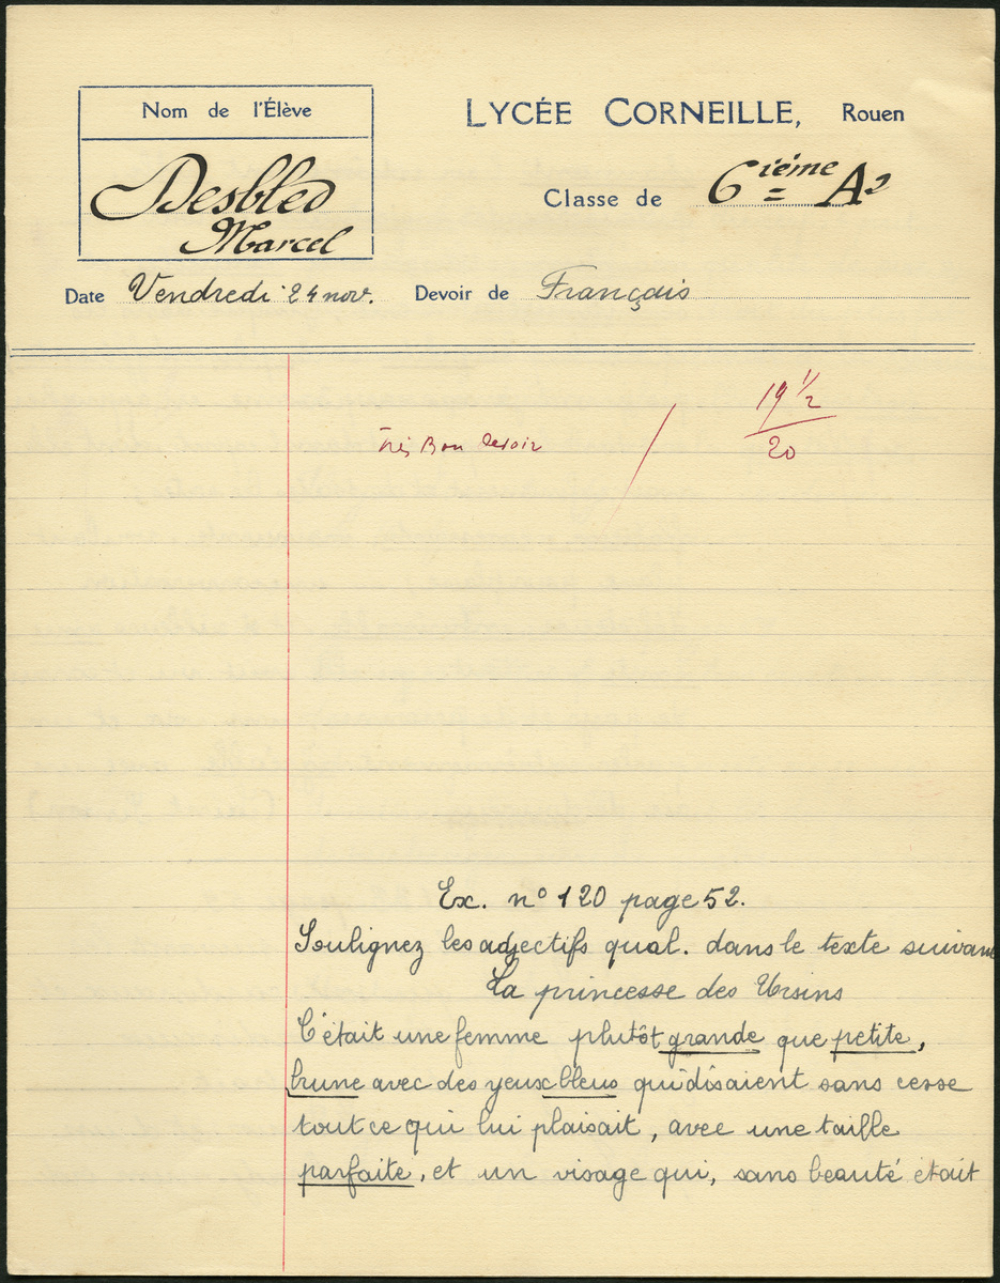 Nom de l'Élève
LYCÉE CORNEILLE, Rouen
Desbled
Marcel
Classe de 6ième A2
Date Vendredi 24 nov. Devoir de Français
Très Bon devoir
19 1/2
20
Ex. n° 120 page 52.
Soulignez les adjectifs qual. dans le texte suivant
La princesse des Ursins
C'était une femme plutôt grande que petite,
brune avec des yeux bleus qui disaient sans cesse
tout ce qui lui plaisait, avec une taille
parfaite, et un visage qui, sans beauté était